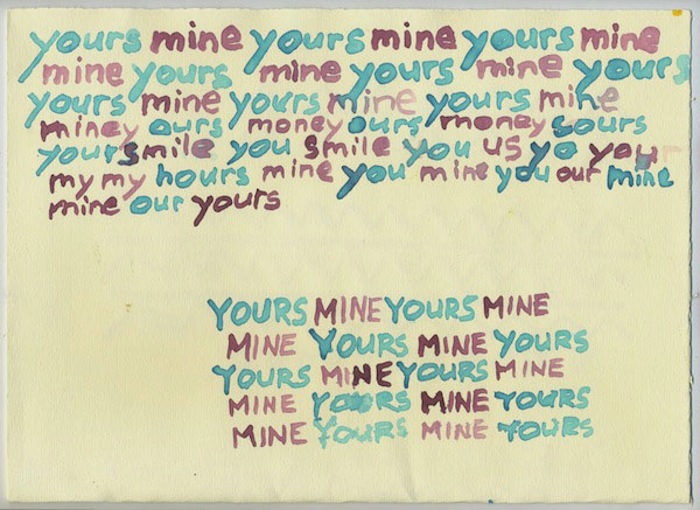 yours mine yours mine yours mine
mine yours mine yours mine yours
yours mine yours mine yours mine
miney ours money ours money sours
yoursmile you smile you us yo your
my my hours mine you mine you our mine
mine our yours
YOURS MINE YOURS MINE
MINE YOURS MINE YOURS
YOURS MINE YOURS MINE
MINE YOURS MINE YOURS
MINE YOURS MINE YOURS